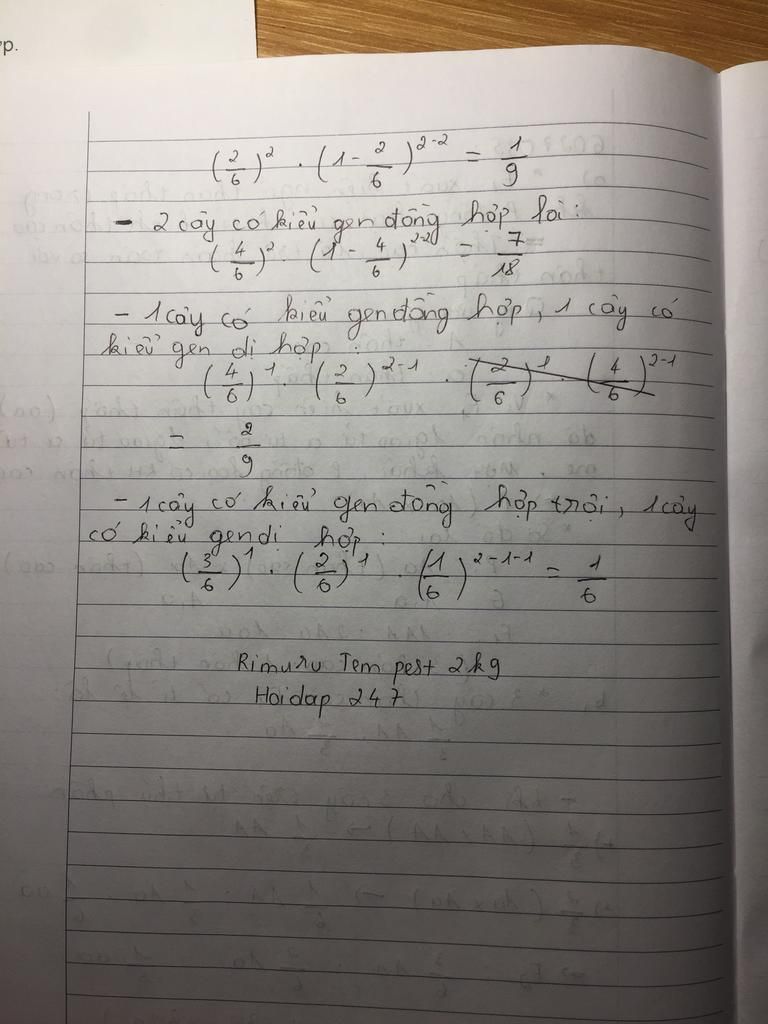 ợp.
(2/6)^2 . (1 - 2/6)^{2-2} = 1/9
- 2 cây có kiểu gen đồng hợp lai:
(4/6)^2 . (1 - 4/6)^{2-2} = 7/18
- 1 cây có kiểu gen đồng hợp, 1 cây có
kiểu gen dị hợp :
(4/6)^1 . (2/6)^{2-1} . (2/6)^1 . (4/6)^{2-1}
= 2/9
- 1 cây có kiểu gen đồng hợp trội, 1 cây
có kiểu gen dị hợp :
(3/6)^1 . (2/6)^1 . (1/6)^{2-1-1} = 1/6
Rimuru Tempest 2kg
Hoidap 247